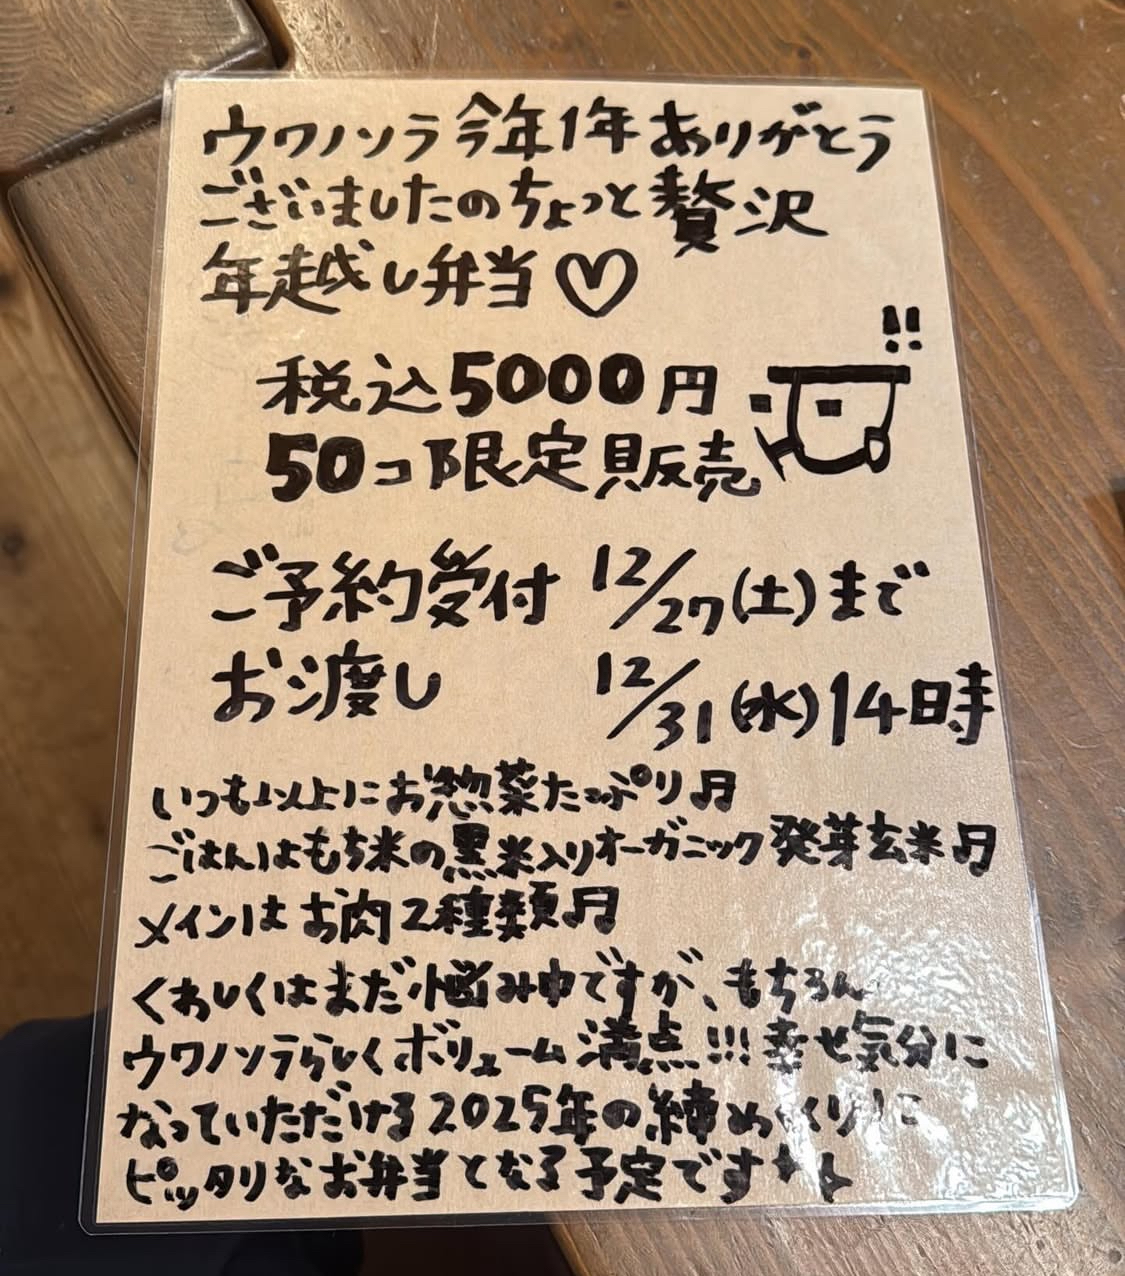 ウワノソラ今年1年ありがとう
ございましたのちょっと贅沢
年越し弁当♡
税込5000円
50コ限定販売
!!
ご予約受付 12/27(土)まで
お渡し 12/31(水)14時
いつも以上にお惣菜たっぷり♬
ごはんはもち米の黒米入りオーガニック発芽玄米♬
メインはお肉2種類♬
くわしくはまだ悩み中ですが、もちろん
ウワノソラらしくボリューム満点!!!幸せ気分に
なっていただける2025年の締めくくりに
ピッタリなお弁当となる予定です